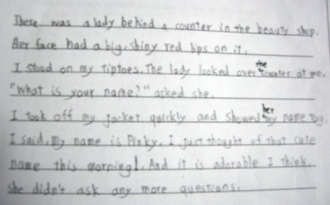 There was a lady behind a counter in the beauty shop.
Her face had a big, shiny red lips on it.
I stood on my tiptoes. The lady looked over the counter at me.
"What is your name?" asked she.
I took off my jacket quickly and showed her my name tag.
I said, My name is Pinky. I just thought of that cute
name this morning!. And it is adorable I think.
She didn't ask any more questions.